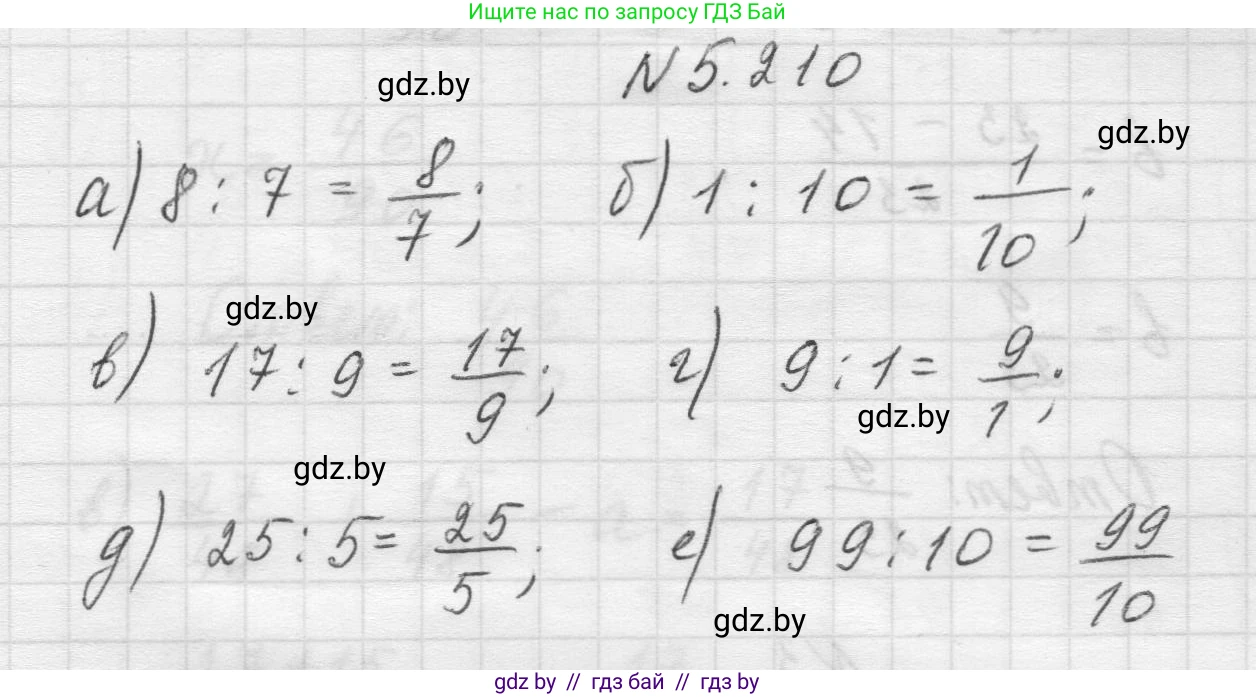 Ищите нас по запросу ГДЗ Бай
N 5.210
gdz.by
gdz.by
а) 8 : 7 = 8/7; б) 1 : 10 = 1/10;
gdz.by
в) 17 : 9 = 17/9; г) 9 : 1 = 9/1;
gdz.by
gdz.by
д) 25 : 5 = 25/5; е) 99 : 10 = 99/10
gdz.by
gdz by // гдз бай // гдз by